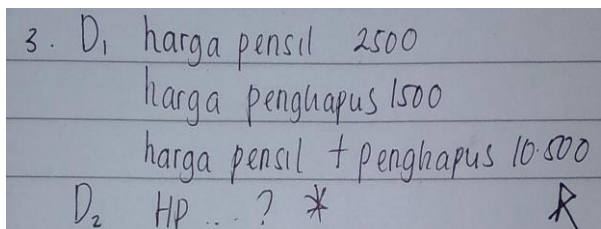 3. D₁ harga pensil 2500
harga penghapus 1500
harga pensil + penghapus 10.500
D₂ HP ... ? * R